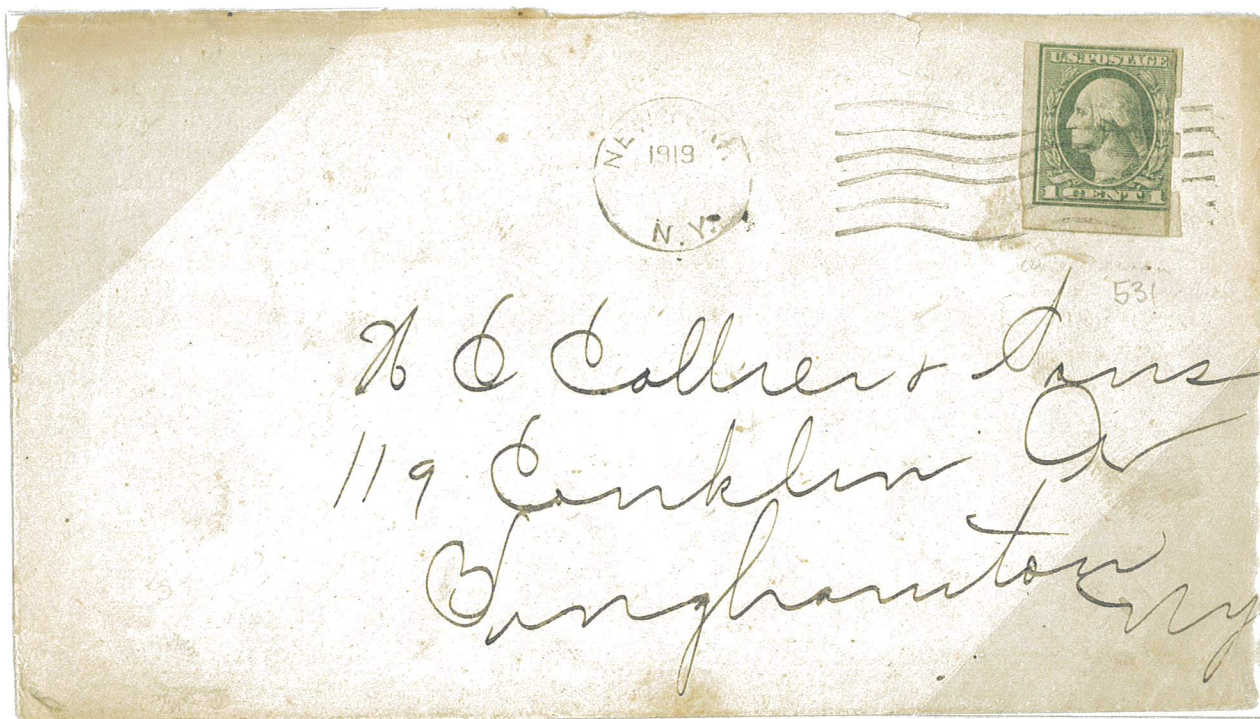 U.S. POSTAGE
1 CENT 1
1919
N.Y.
531
H C Collier & Sons
119 Conklin Av
Binghamton
NY